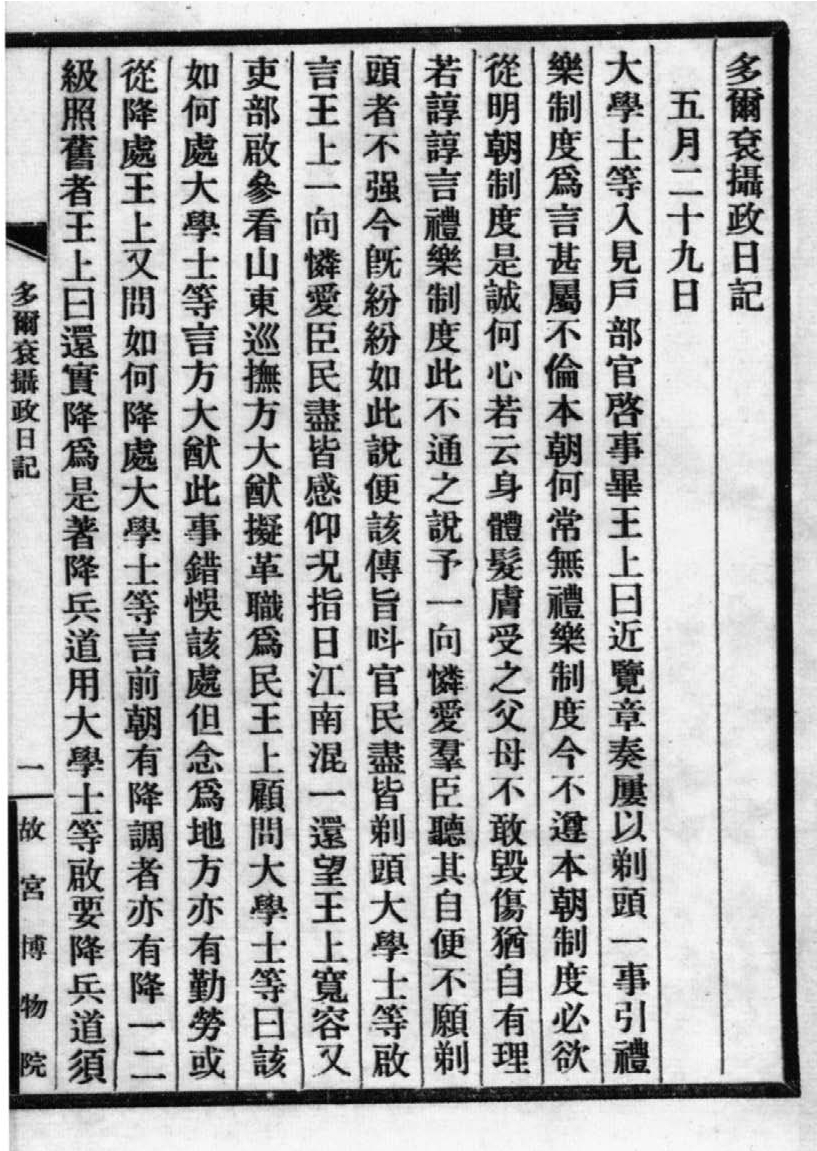 多爾袞攝政日記
五月二十九日
大學士等入見戶部官啓事畢王上曰近覽章奏屢以剃頭一事引禮
樂制度爲言甚屬不倫本朝何常無禮樂制度今不遵本朝制度必欲
從明朝制度是誠何心若云身體髮膚受之父母不敢毀傷猶自有理
若諄諄言禮樂制度此不通之說予一向憐愛羣臣聽其自便不願剃
頭者不强今旣紛紛如此說便該傳旨呌官民盡皆剃頭大學士等啟
言王上一向憐愛臣民盡皆感仰况指日江南混一還望王上寬容又
吏部啟參看山東巡撫方大猷擬革職爲民王上顧問大學士等曰該
如何處大學士等言方大猷此事錯悞該處但念爲地方亦有勤勞或
從降處王上又問如何降處大學士等言前朝有降調者亦有降一二
級照舊者王上曰還實降爲是著降兵道用大學士等啟要降兵道須
多爾袞攝政日記
一
故宮博物院